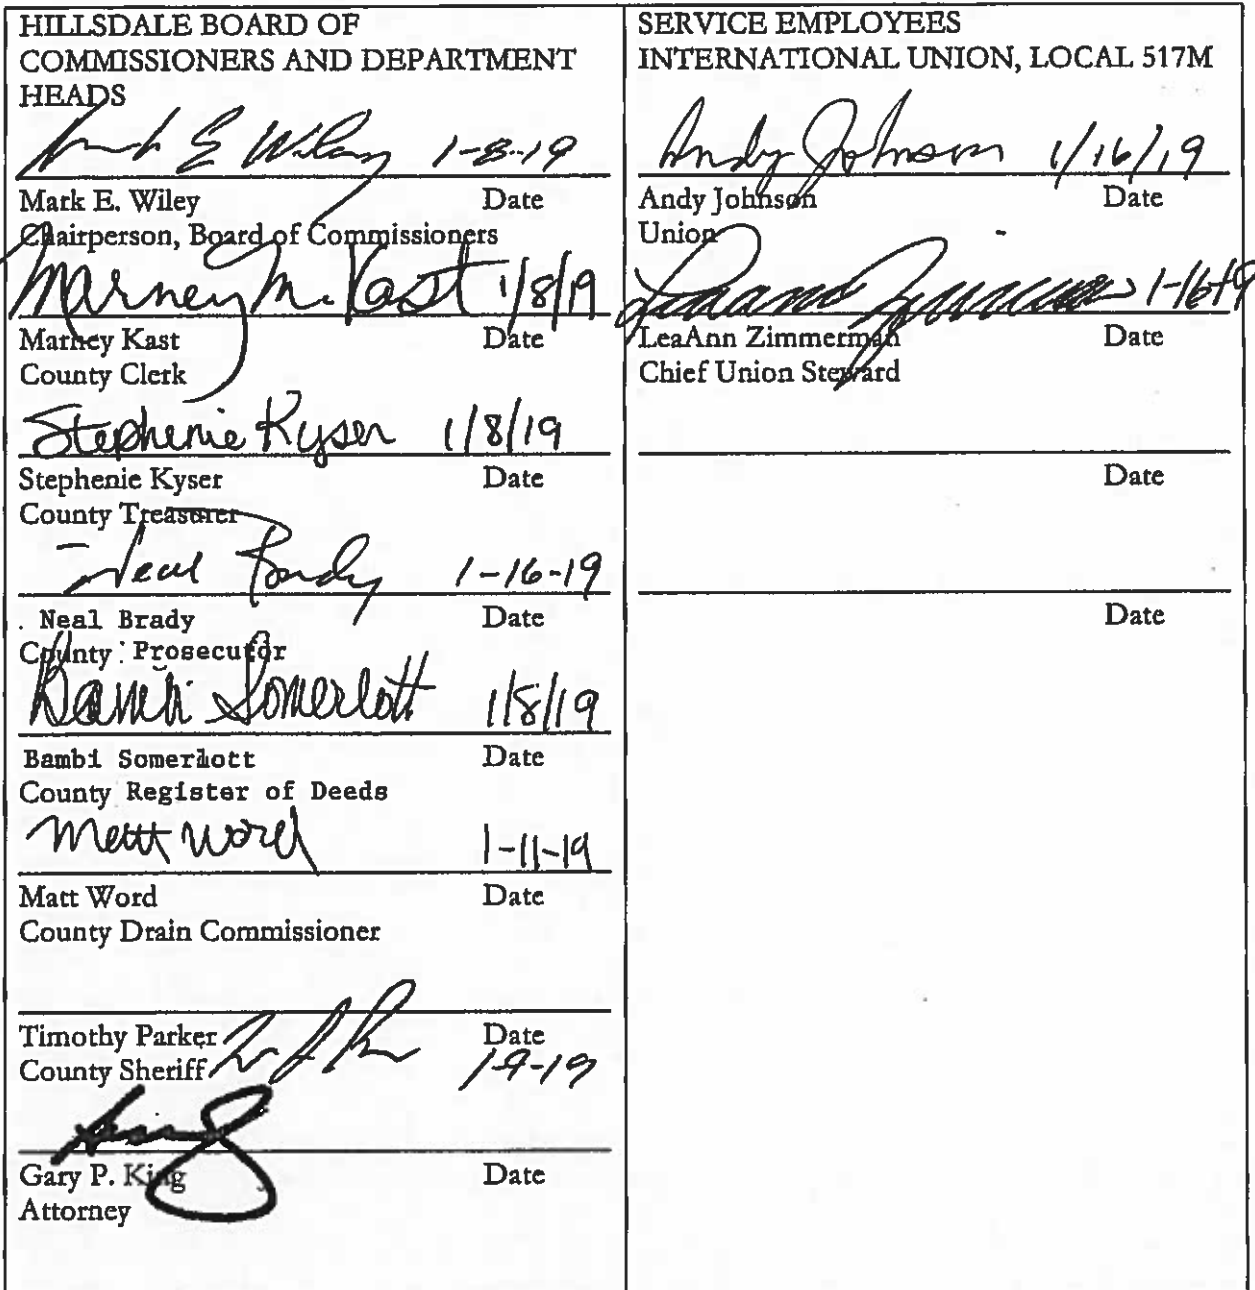 HILLSDALE BOARD OF
COMMISSIONERS AND DEPARTMENT
HEADS
Mark E Wiley 1-8-19
Mark E. Wiley Date
Chairperson, Board of Commissioners
Marney M. Kast 1/8/19
Marney Kast Date
County Clerk
Stephenie Kyser 1/8/19
Stephenie Kyser Date
County Treasurer
Neal Brady 1-16-19
Neal Brady Date
County Prosecutor
Bambi Somerlott 1/8/19
Bambi Somerlott Date
County Register of Deeds
Matt Word 1-11-19
Matt Word Date
County Drain Commissioner
Timothy Parker Date
County Sheriff 1-9-19
Gary P. King Date
Attorney
SERVICE EMPLOYEES
INTERNATIONAL UNION, LOCAL 517M
Andy Johnson 1/16/19
Andy Johnson Date
Union
LeaAnn Zimmerman 1-16-19
LeaAnn Zimmerman Date
Chief Union Steward
Date
Date